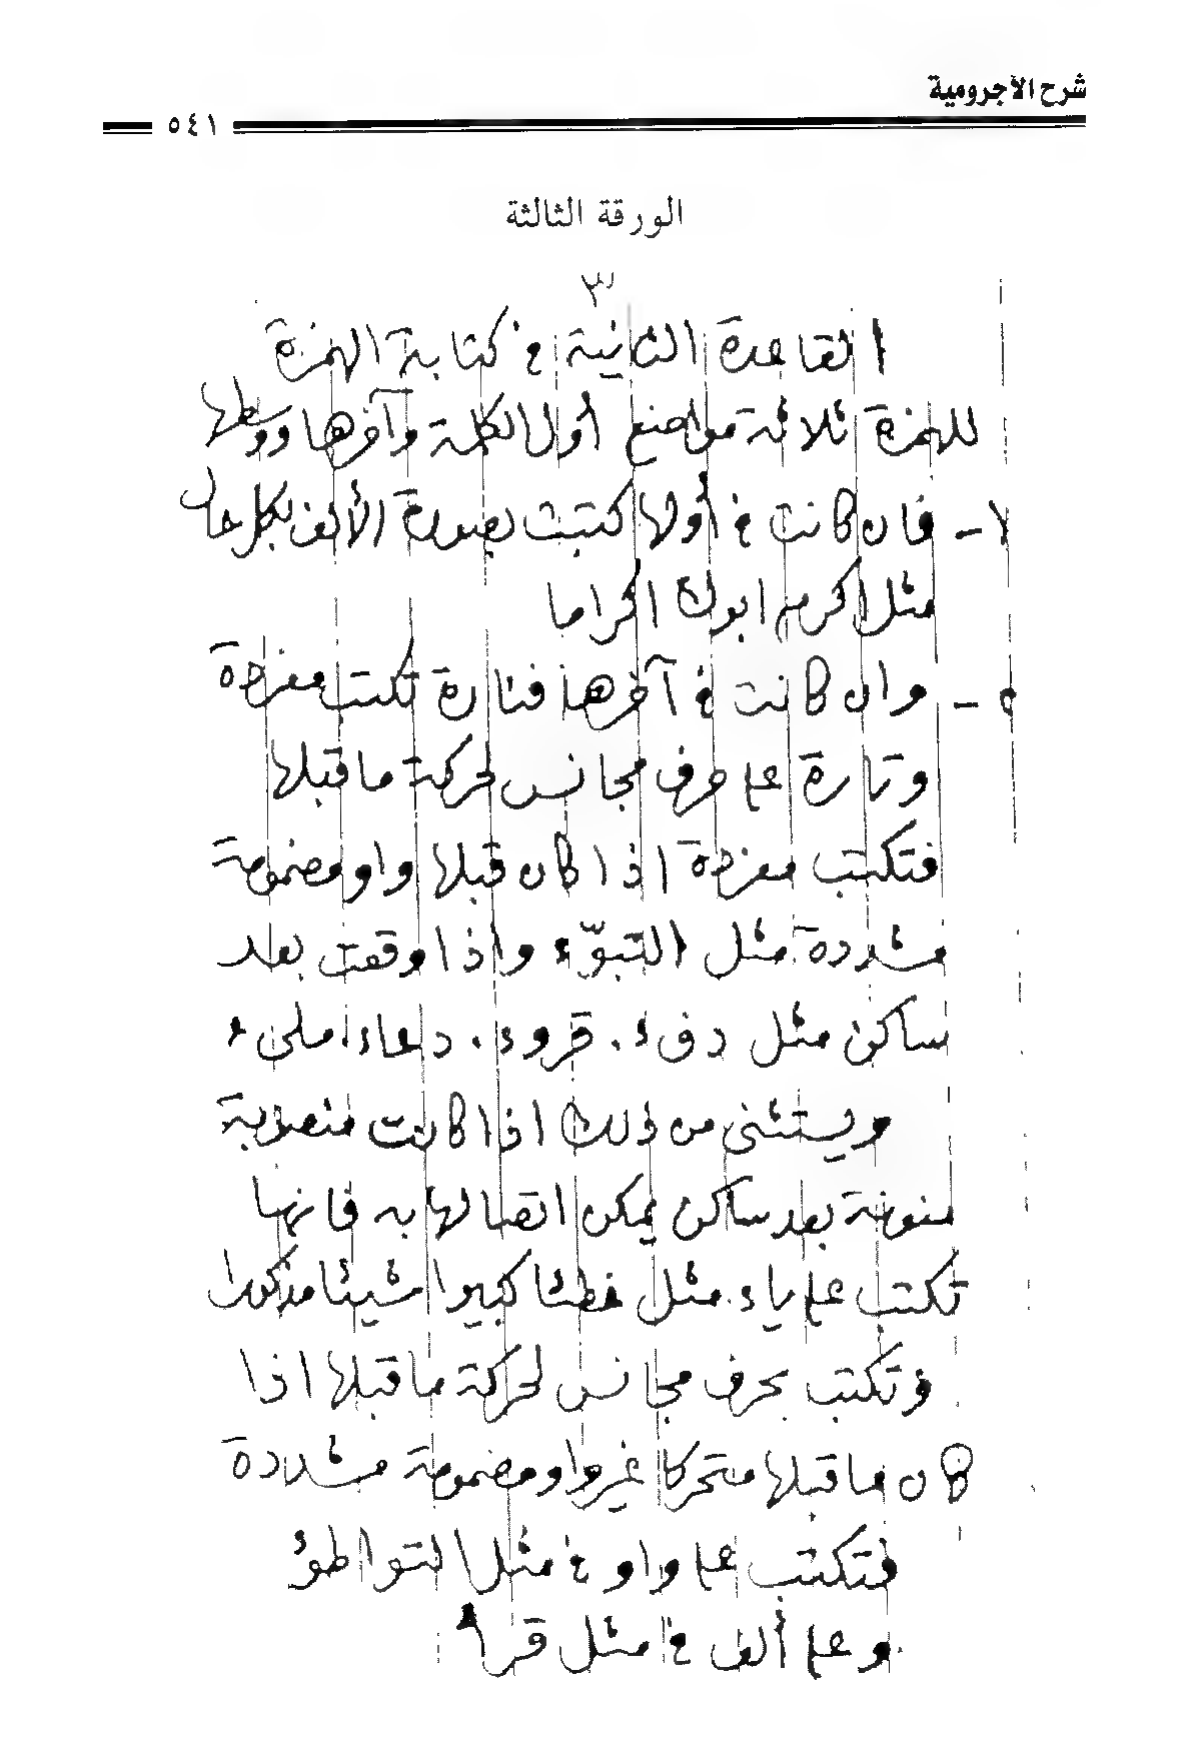 شرح الآجرومية
٥٤١
الورقة الثالثة
٣
القاعدة الثانية في كتابة الهمزة
للهمزة ثلاثة مواضع أول الكلمة وآخرها ووسطها
١- فان كانت في أولها كتبت بصورة الألف بكل حال
مثل اكرم ابوك اكراما
٢- وان كانت في آخرها فتارة تكتب مفردة
وتارة على حرف مجانس لحركة ما قبلها
فتكتب مفردة اذا كان قبلها واو مضمومة
مشددة مثل التبوّء واذا وقعت بعد
ساكن مثل دفء . قروء . دعاء . مليء
ويستثنى من ذلك اذا كانت منصوبة
منونة بعد ساكن يمكن اتصالها به فانها
تكتب على ياء . مثل خطئا كبيرا شيئا مذكورا
وتكتب بحرف مجانس لحركة ما قبلها اذا
كان ما قبلها متحركا غير واو مضمومة مشددة
فتكتب على واو في مثل التواطؤ
وعلى ألف في مثل قرأ